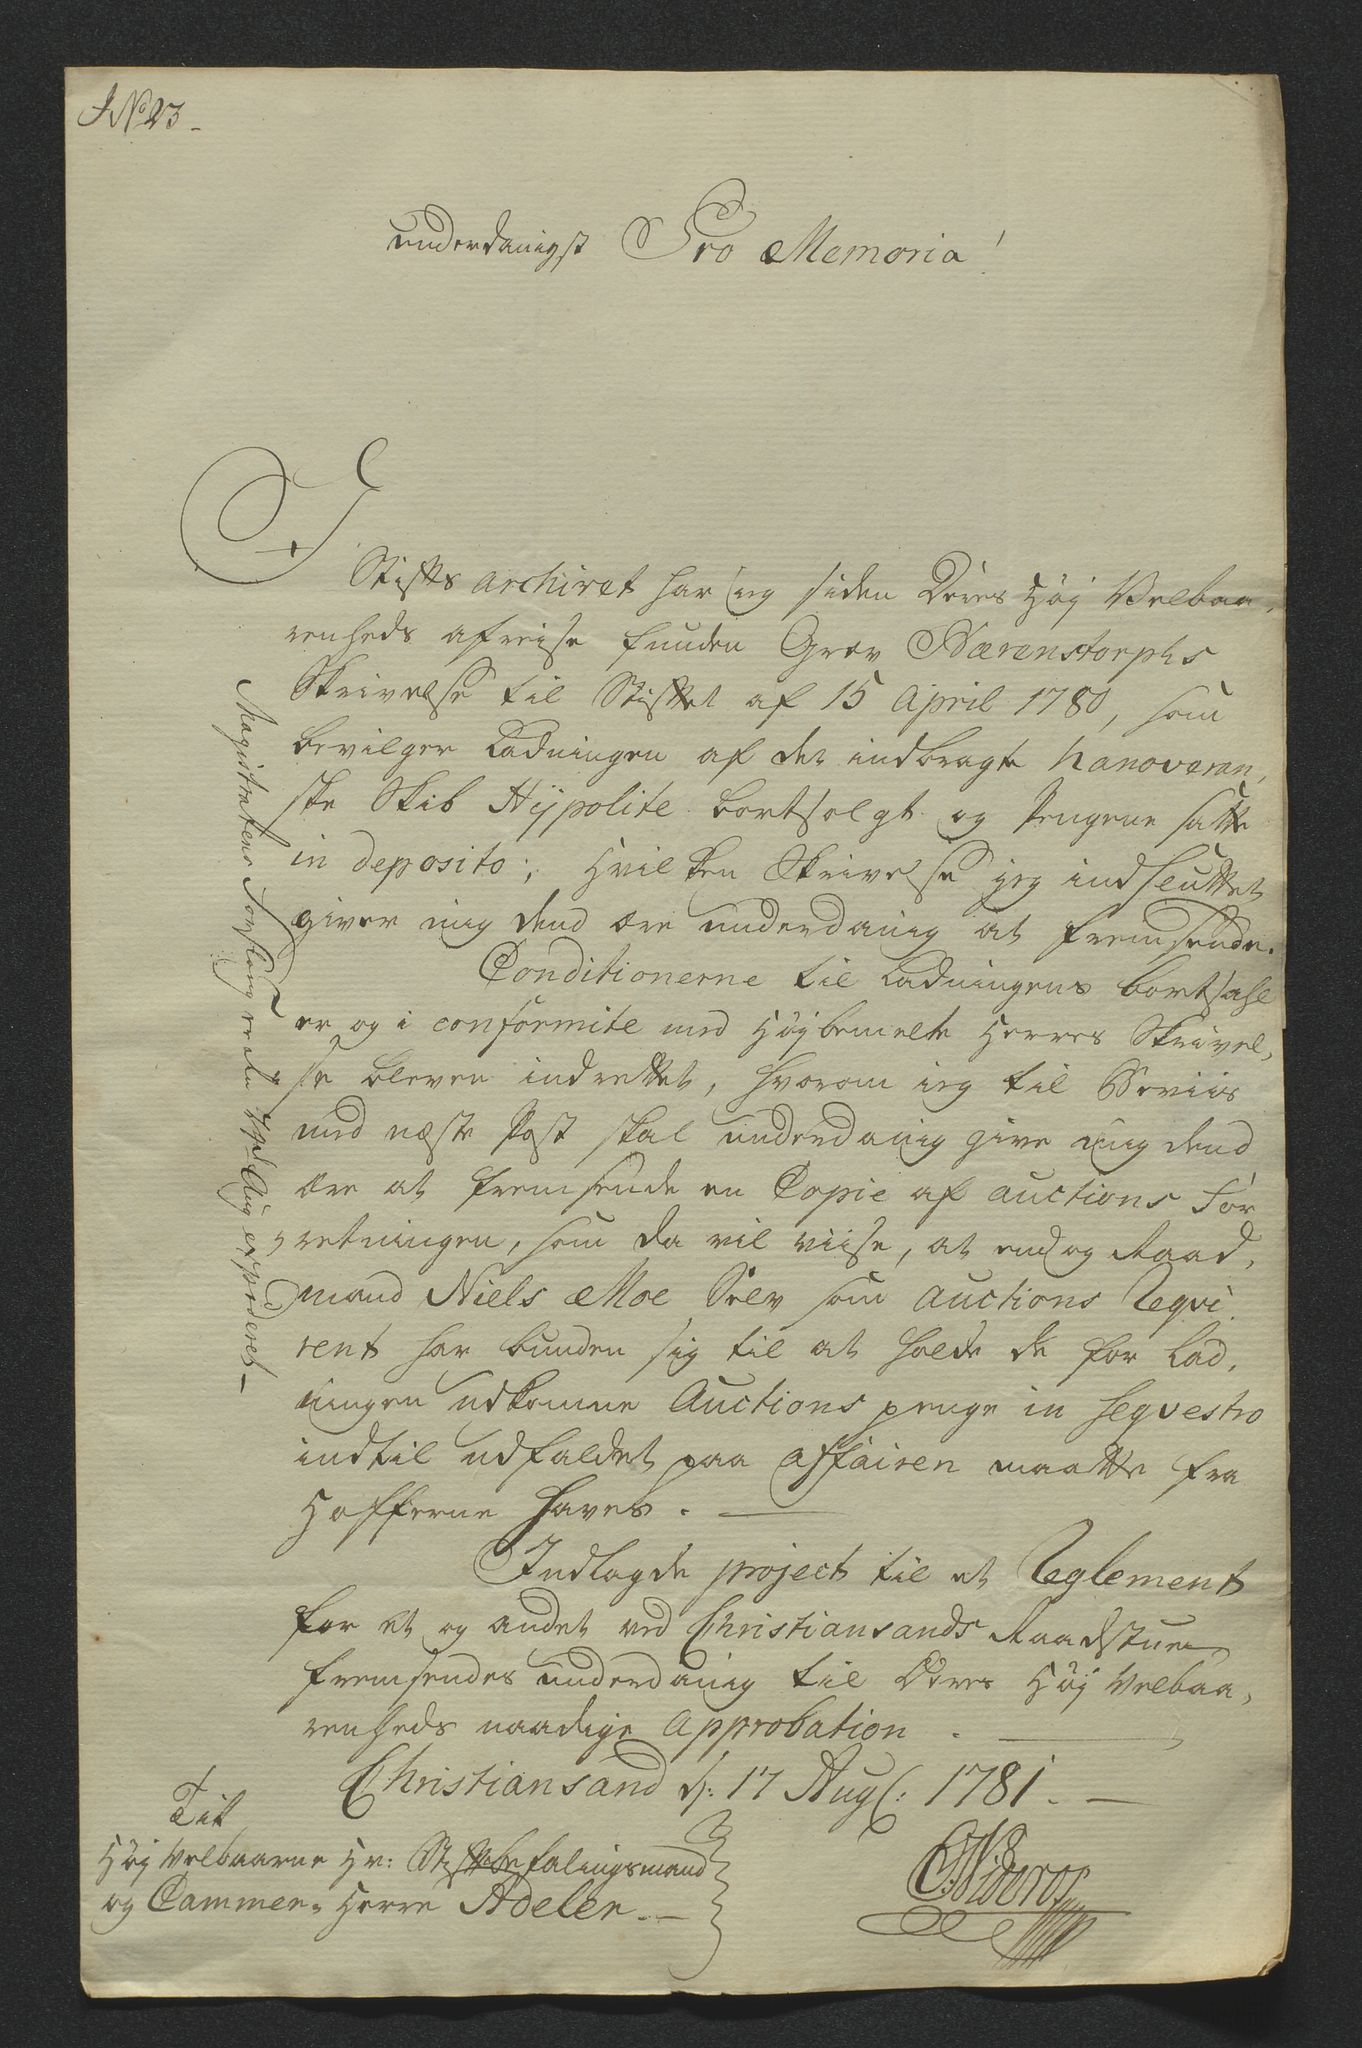 J No 23
underdanigst Pro Memoria!
I
Stifts archivet har ieg siden Deres Høj Velbaa,
renheds afreise funden Grev Bærenstorphs
Skrivelse til Stiftet af 15 April 1780, som
bevilger Ladningen af det indbragte hanoveran,
ske Skib Hÿpolite bortsolgt og Pengene satte
in deposito; hvilken Skrivelse jeg indsluttet
giver mig dend ære underdanig at fremsende.
Conditionerne til Ladningens bortsahl
er og i conformite med Højbemelte Herres Skrivel,
se bleven indrettet, hvorom ieg til Beviis
med næste Post skal underdanig give mig dend
ære at fremsende en Copie af auctions For
retningen, som da vil viise, at endog Raad,
mand Niels Moe Selv som Auctions Reqvi
rent har bunden sig til at holde de for Lad,
ningen udkomne Auctions penge in seqvestro
indtil udfaldet paa affairen maatte fra
Hofferne haves.
Indlagde project til et Reglement
for et og andet ved Christiansands Raadstue
fremsendes underdanig til Deres Høj Velbaa,
renheds naadige Approbation.
Christiansand d: 17 Aug: 1781.
Tit
Høj Velbaarne Hr: Stiftbefalingsmand
og Cammer= Herre Adeler.
Magistratens Forslag er den Aug expederet